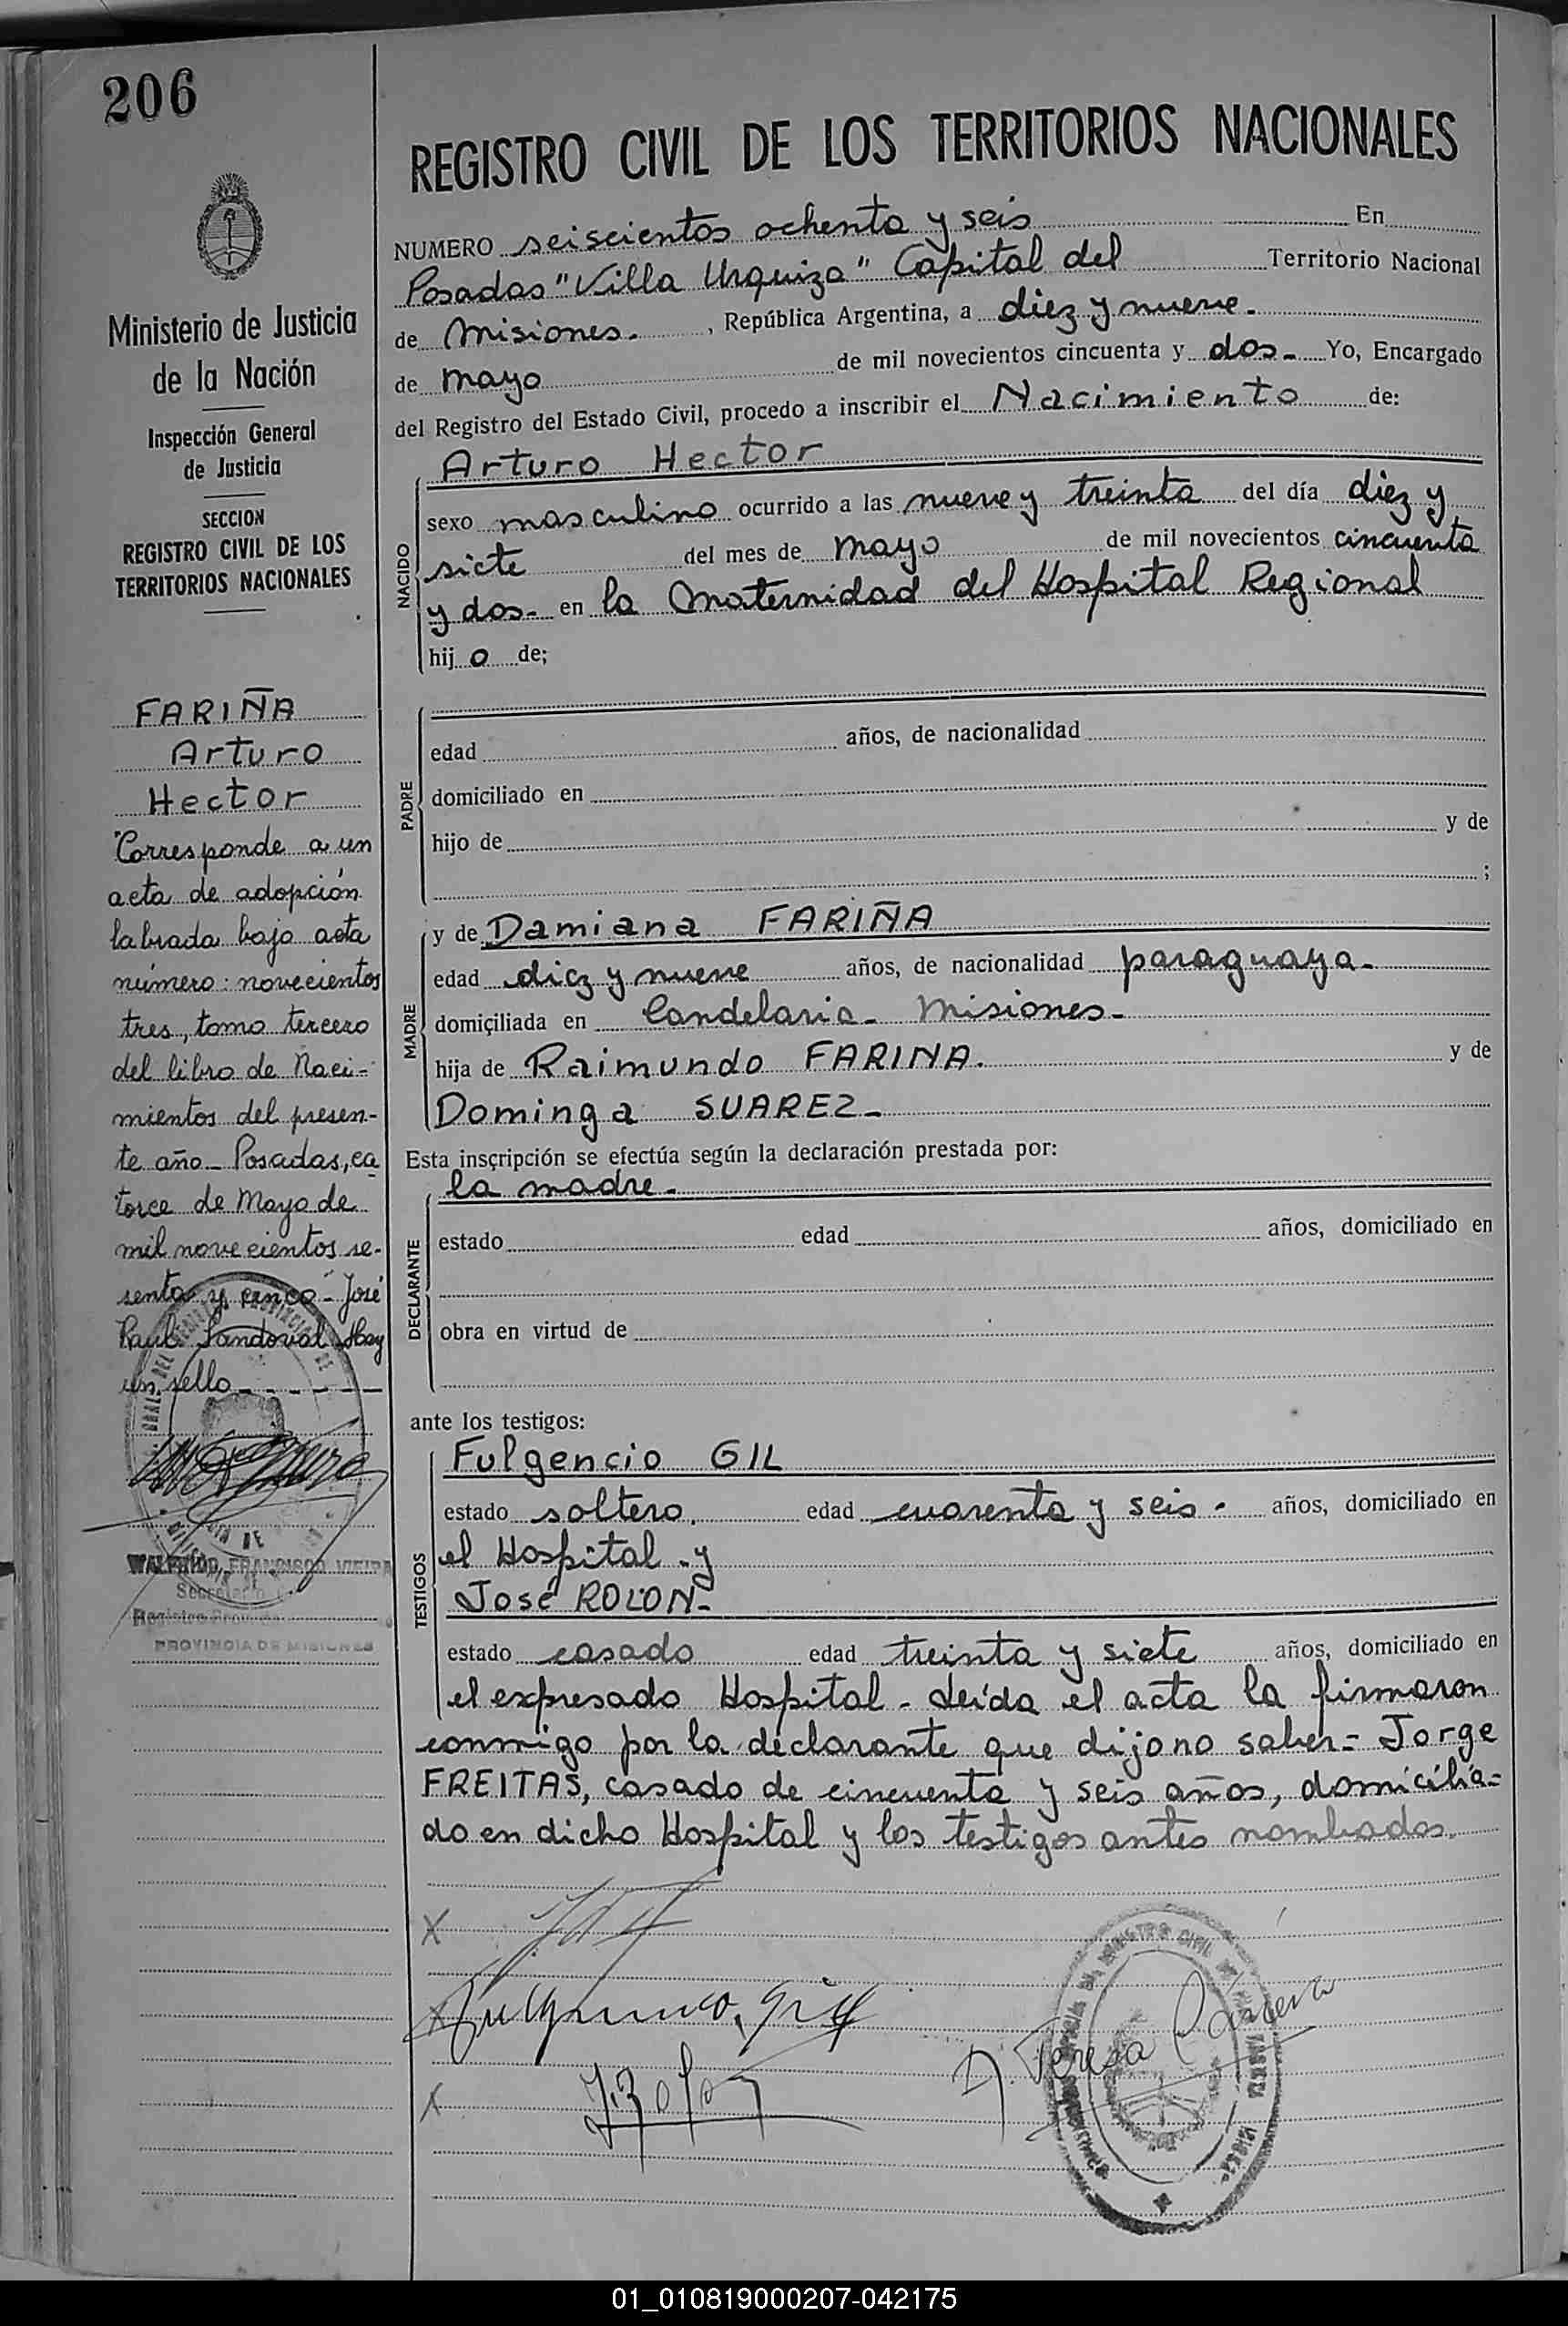 206
Ministerio de Justicia
de la Nación
Inspección General
de Justicia
SECCION
REGISTRO CIVIL DE LOS
TERRITORIOS NACIONALES
FARIÑA
Arturo
Hector
Corresponde a un
acta de adopción
labrada bajo acta
número: novecientos
tres, tomo tercero
del libro de Naci-
mientos del presen-
te año - Posadas, ca
torce de Mayo de
mil novecientos se-
senta y cinco - José
Raul Sandoval Hay
un sello
WALFRIDO FRANCISCO VIEIRA
PROVINCIA DE MISIONES
REGISTRO CIVIL DE LOS TERRITORIOS NACIONALES
NUMERO seiscientos ochenta y seis En
Posadas "Villa Urquiza" Capital del Territorio Nacional
de Misiones. , República Argentina, a diez y nueve.
de mayo de mil novecientos cincuenta y dos- Yo, Encargado
del Registro del Estado Civil, procedo a inscribir el Nacimiento de:
Arturo Hector
NACIDO
sexo masculino ocurrido a las nueve y treinta del día diez y
siete del mes de mayo de mil novecientos cincuenta
y dos- en la Maternidad del Hospital Regional
hijo de;
PADRE
edad años, de nacionalidad
domiciliado en
hijo de y de
;
MADRE
y de Damiana FARIÑA
edad diez y nueve años, de nacionalidad paraguaya-
domiciliada en Candelaria- Misiones-
hija de Raimundo FARINA. y de
Dominga SUAREZ-
Esta inscripción se efectúa según la declaración prestada por:
la madre-
DECLARANTE
estado edad años, domiciliado en
obra en virtud de
ante los testigos:
TESTIGOS
Fulgencio GIL
estado soltero. edad cuarenta y seis- años, domiciliado en
el Hospital - y
José ROLON-
estado casado edad treinta y siete años, domiciliado en
el expresado Hospital - Leída el acta la firmaron
conmigo por la declarante que dijo no saber- Jorge
FREITAS, casado de cincuenta y seis años, domicilia-
do en dicho Hospital y los testigos antes nombrados.
X
X Fulgencio Gil
X J. Rolon
Teresa
01_010819000207-042175